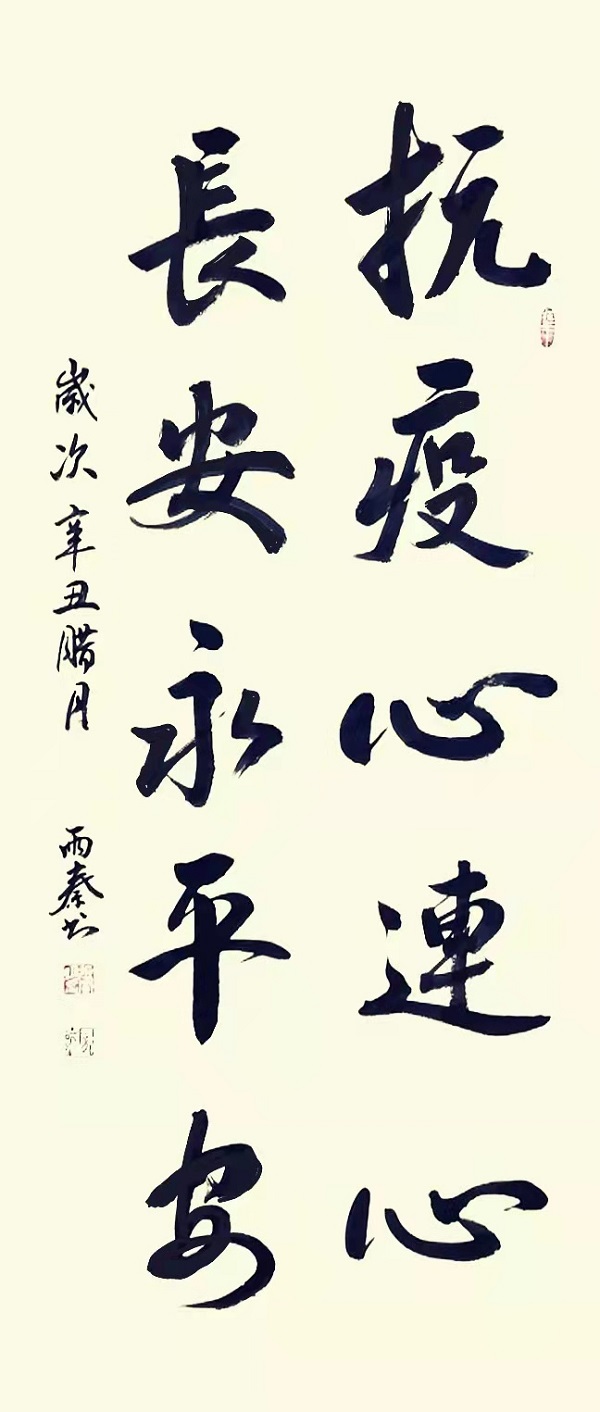 抗疫心連心
長安永平安
歲次辛丑腊月
雨秦书